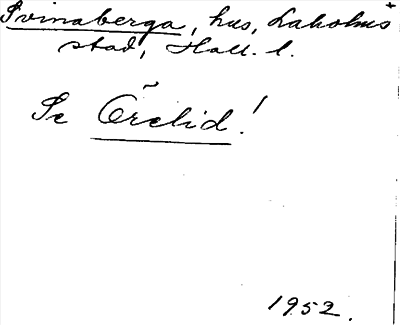 Svinaberga, hus, Laholms
stad, Hall. l.
Se Örelid!
1952.